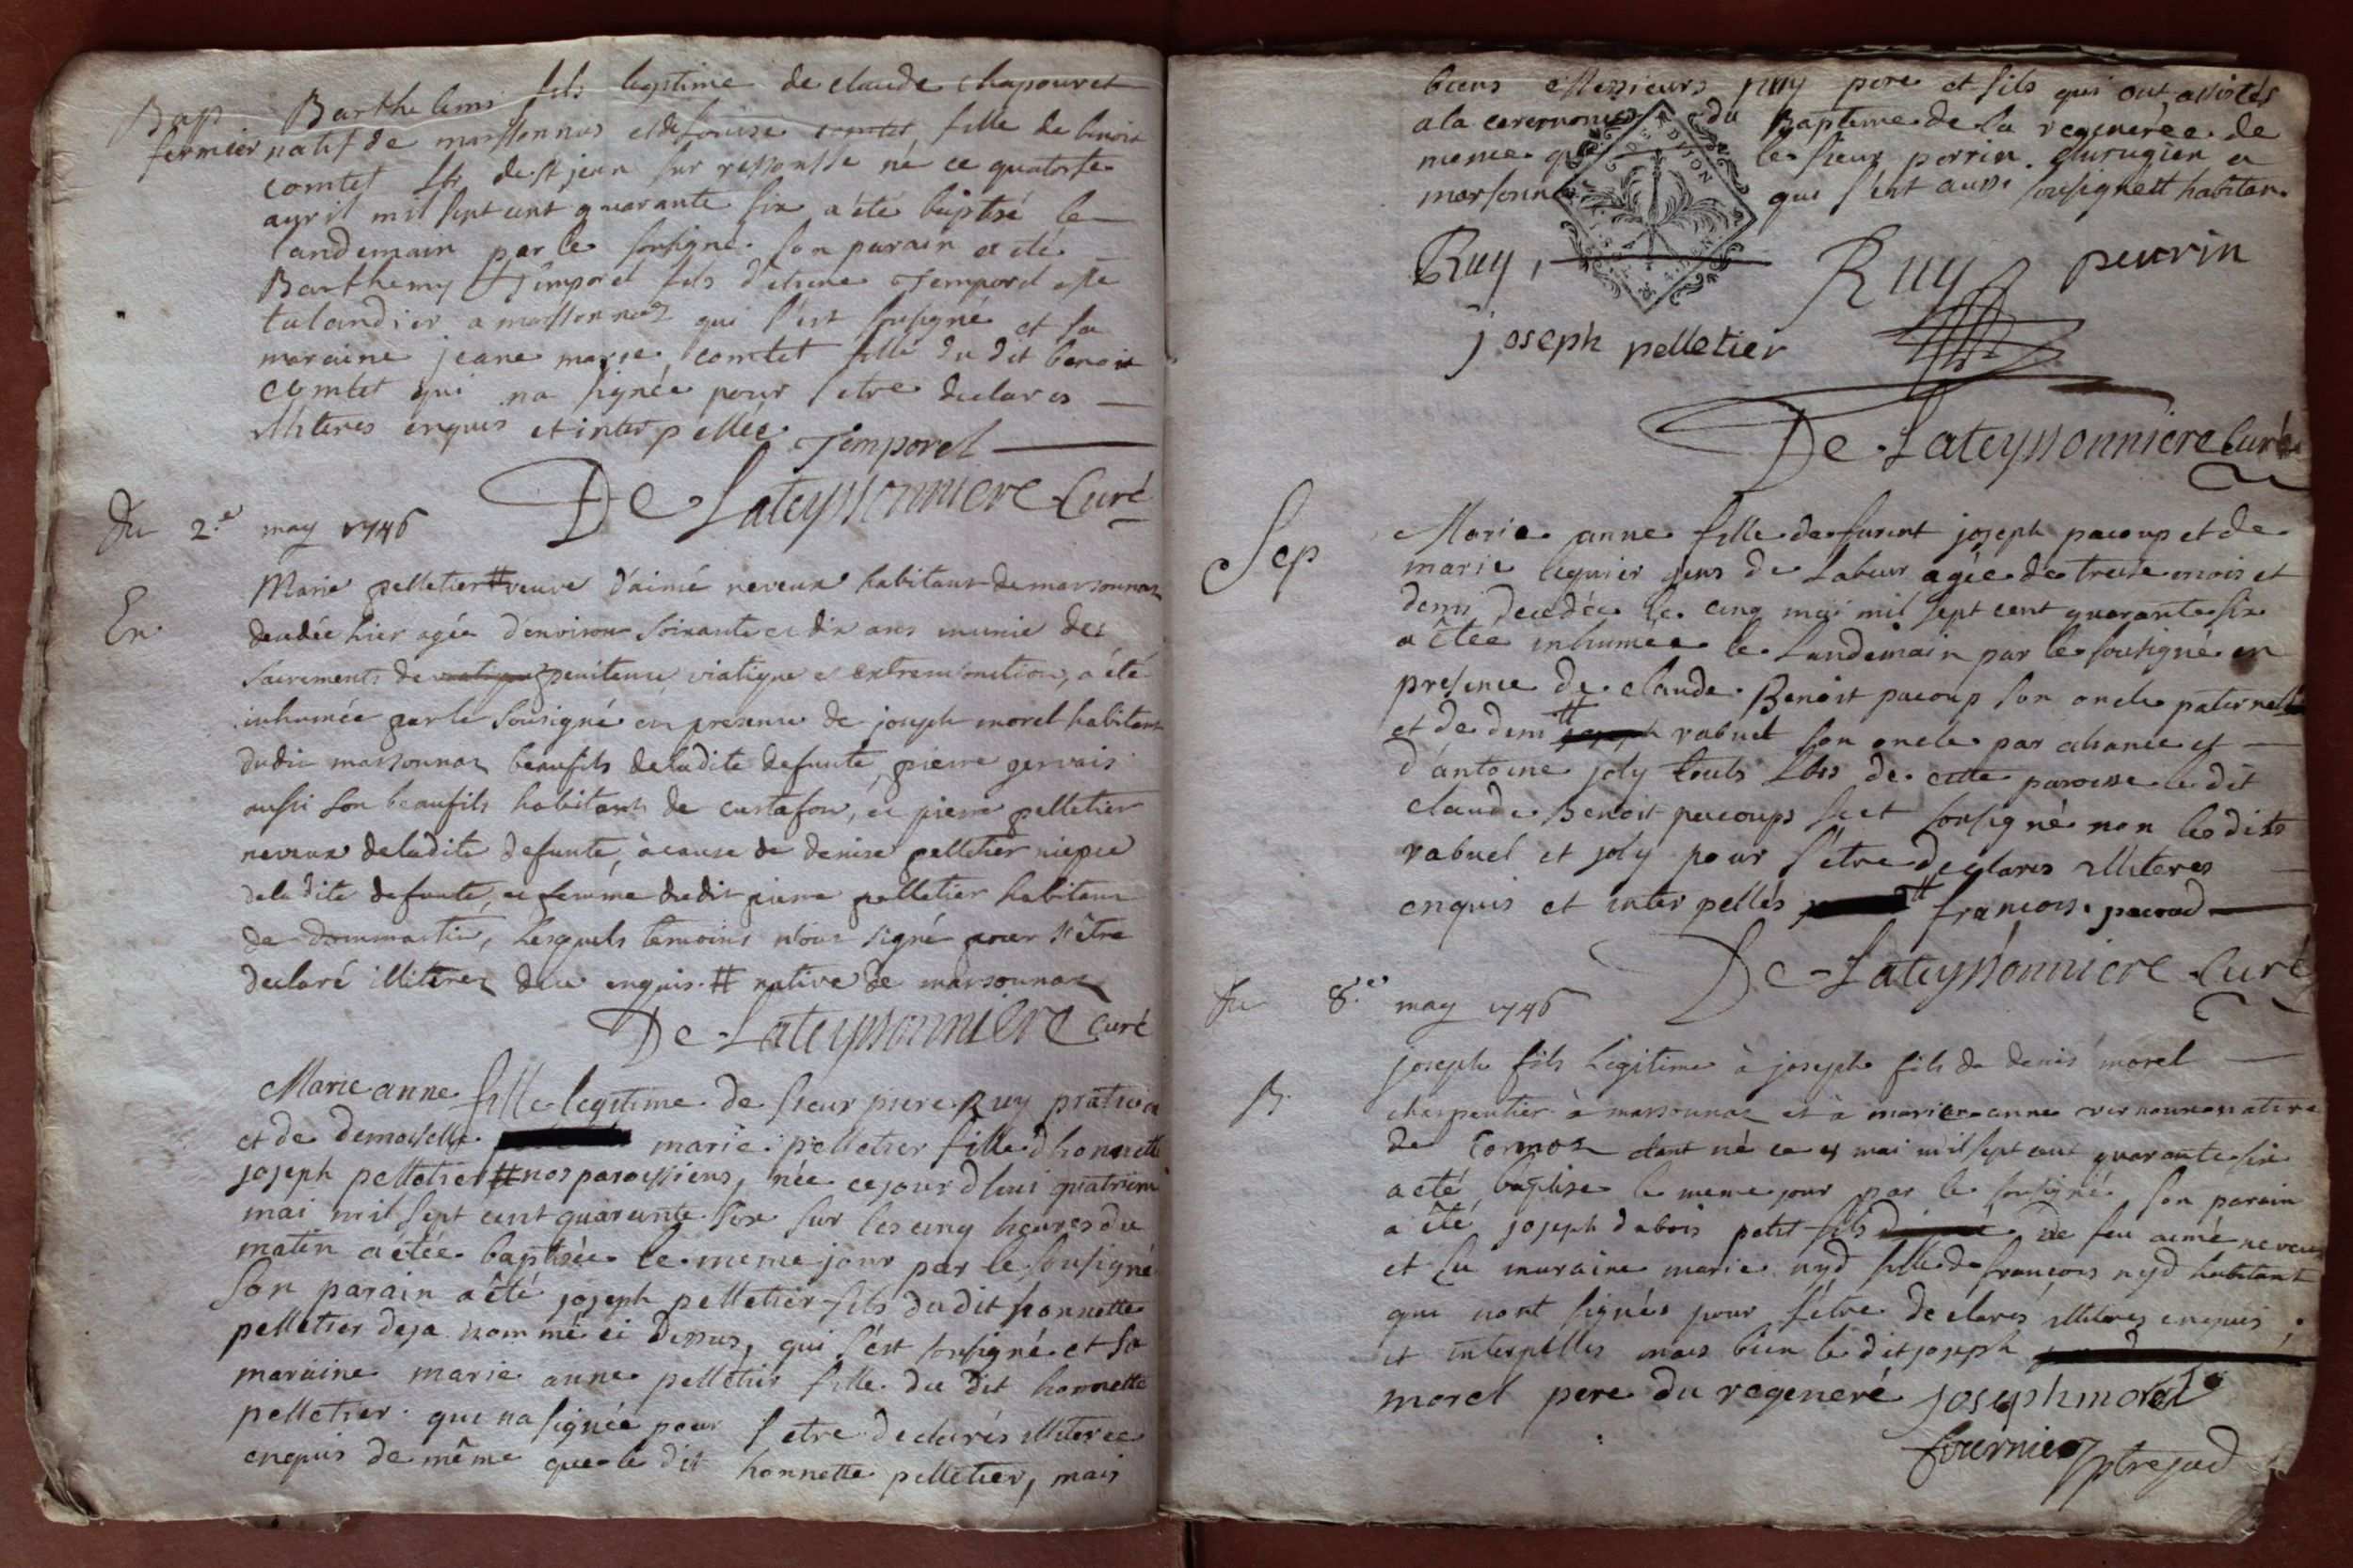 Bap Barthelemi fils legitime de claude chapouret
fermier natif de marsonnas et de fouise comtet fille de benoit
comtet de st jean sur ressousse né ce quatorse
avril mil sept cent quarante six a été baptisé le
landemain par le sousigné son parain a été
Barthemy Temporel fils d'etiene Temporel
talandier a marsonnas qui s'est sousigné et sa
maraine jeane marie comtet fille du dit benoit
comtet qui na signée pour s'etre declares
illiteres enquis et interpellée. Temporel
De Lateyssonniere Curé
Du 2.e may 1746
En. Marie pelletier # veuve d'aimé neveux habitant de marsonnas
decedée hier agée d'environ soixante et dix ans munie des
sacrements de penitence viatique et extremeonction, a été
inhumée par le sousigné en presence de joseph morel habitant
dudit marsonnas beaufils de ladite defunte, pierre gervais
aussi son beaufils habitant de curtafon, et pierre pelletier
neveux de ladite defunte, à cause de denise pelletier niepce
de la dite defunte, et femme dudit pierre pelletier habitant
de dommartin, lesquels temoins n'ont signé pour s'être
declaré illiteres de ce enquis. # native de marsonnas
De Lateyssonniere curé
Marie anne fille legitime de sieur piere Ruy praticien
et de demoiselle marie pelletier fille d honnette
joseph pelletier # nos paroissiens, née cejourdhui quatrieme
mai mil sept cent quarante six sur les cinq heures du
matin a étée baptisée le meme jour par le sousigné
son parain a été joseph pelletier fils dudit honnette
pelletier deja nommé ci dessus, qui s'est sousigné et sa
maraine marie anne pelletier fille du dit honnette
pelletier qui na signée pour s etre declarés illiteree
enquis de même que le dit honnette pelletier, mais
biens Messieurs Ruy pere et fils qui ont assistés
a la ceremonie du Bapteme de la regenerée de
meme que le sieur perrin chirugien a
marsonnas qui s'est aussi sousigné # habitan
Ruy, Ruy perrin
joseph pelletier
De Lateyssonniere Curé
Sep Marie anne fille de furent joseph pacoup et de
marie leguier gens de labeur agée de treise mois et
demi decedée le cinq mai mil sept cent quarante six
a étée inhumee le landemain par le sousigné en
presence de claude Benoit pacoup son oncle paternel
et de deni # rabuel son oncle par aliance et
d'antoine joly touts de cette paroisse le dit
claude Benoit pacoups s'est sousigné non les dits
rabuel et joly pour s'etre declares illiteres
enquis et interpellés # francois pacoud
De Lateyssonniere Curé
Du 8.e may 1746
B. joseph fils legitime à joseph fils de denis morel
charpentier à marsonnas et à marie anne native
de Cormoz etant né ce mai mil sept cent quarante six
a été baptise le meme jour par le sousigné, son parain
a été joseph dubois petit fils de feu aimé neveu
et sa maraine marie nyd fille de francois nyd habitant
qui nont signés pour s'etre declarés illiteres enquis
et interpelles mais bien le dit joseph
morel pere du regeneré joseph morel
fournier